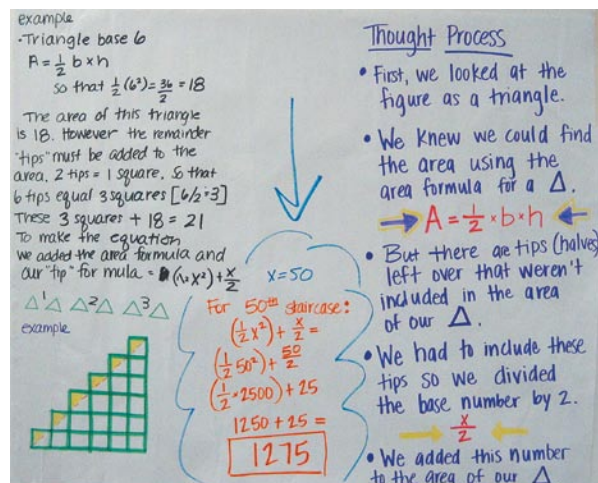 example
·Triangle base 6
A=½ b×h
so that ½(6²)=36/2=18
The area of this triangle
is 18. However the remainder
"tips" must be added to the
area, 2 tips = 1 square. So that
6 tips equal 3 squares [6/2=3]
These 3 squares + 18 = 21
To make the equation
we added the area formula and
our "tip" formula = (½x²)+x/2
△1△ △2△ △3△
example
x=50
For 50th staircase:
(½x²)+x/2=
(½50²)+50/2
(½*2500)+25
1250+25=
1275
Thought Process
• First, we looked at the
figure as a triangle.
• We knew we could find
the area using the
area formula for a △.
A=½×b×h
• But there are tips (halves)
left over that weren't
included in the area
of our △.
• We had to include these
tips so we divided
the base number by 2.
x/2
• We added this number
to the area of our △